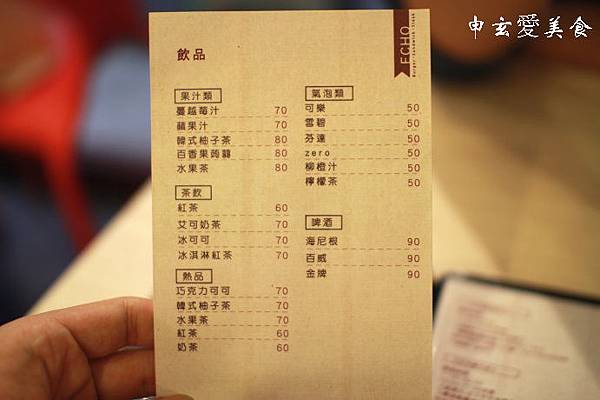 申玄愛美食
ECHO
Burger/Sandwich/Steak
飲品
果汁類
蔓越莓汁 70
蘋果汁 70
韓式柚子茶 80
百香果蒟蒻 80
水果茶 80
茶飲
紅茶 60
艾可奶茶 70
冰可可 70
冰淇淋紅茶 70
熱品
巧克力可可 70
韓式柚子茶 70
水果茶 70
紅茶 60
奶茶 60
氣泡類
可樂 50
雪碧 50
芬達 50
zero 50
柳橙汁 50
檸檬茶 50
啤酒
海尼根 90
百威 90
金牌 90